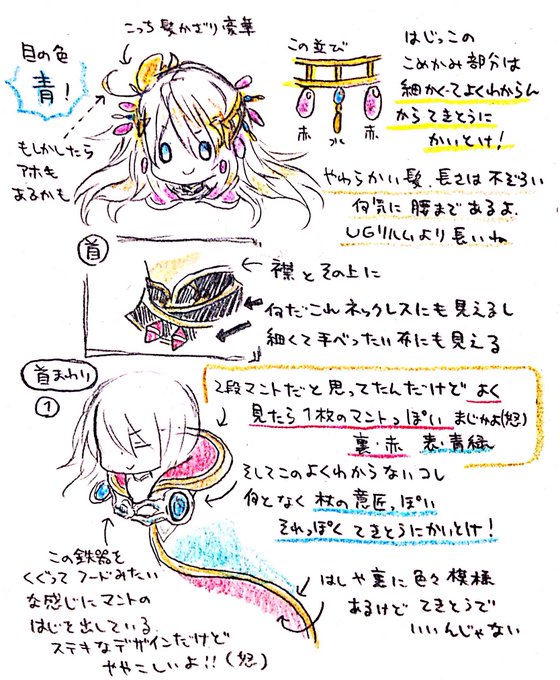 こっち髪かざり豪華
目の色
青!
もしかしたら
アホ毛
あるかも
この並び
赤 水 赤
はじっこの
こめかみ部分は
細かくてよくわからん
からてきとうに
かいとけ!
やわらかい髪 長さは不ぞろい
何気に腰まであるよ.
UGリルムより長いね
首
襟とその上に
何だこれネックレスにも見えるし
細くて平べったい布にも見える
首まわり
①
2段マントだと思ってたんだけど よく
見たら1枚のマントっぽい まじかよ(怒)
裏・赤 表・青緑
そしてこのよくわからないコレ
何となく 杖の意匠っぽい
それっぽく てきとうにかいとけ!
この鉄器を
くぐって フードみたい
な感じにマントの
はじを出している.
ステキなデザインだけど
ややこしいよ!!(怒)
はしや裏に色々模様
あるけど てきとうで
いいんじゃない